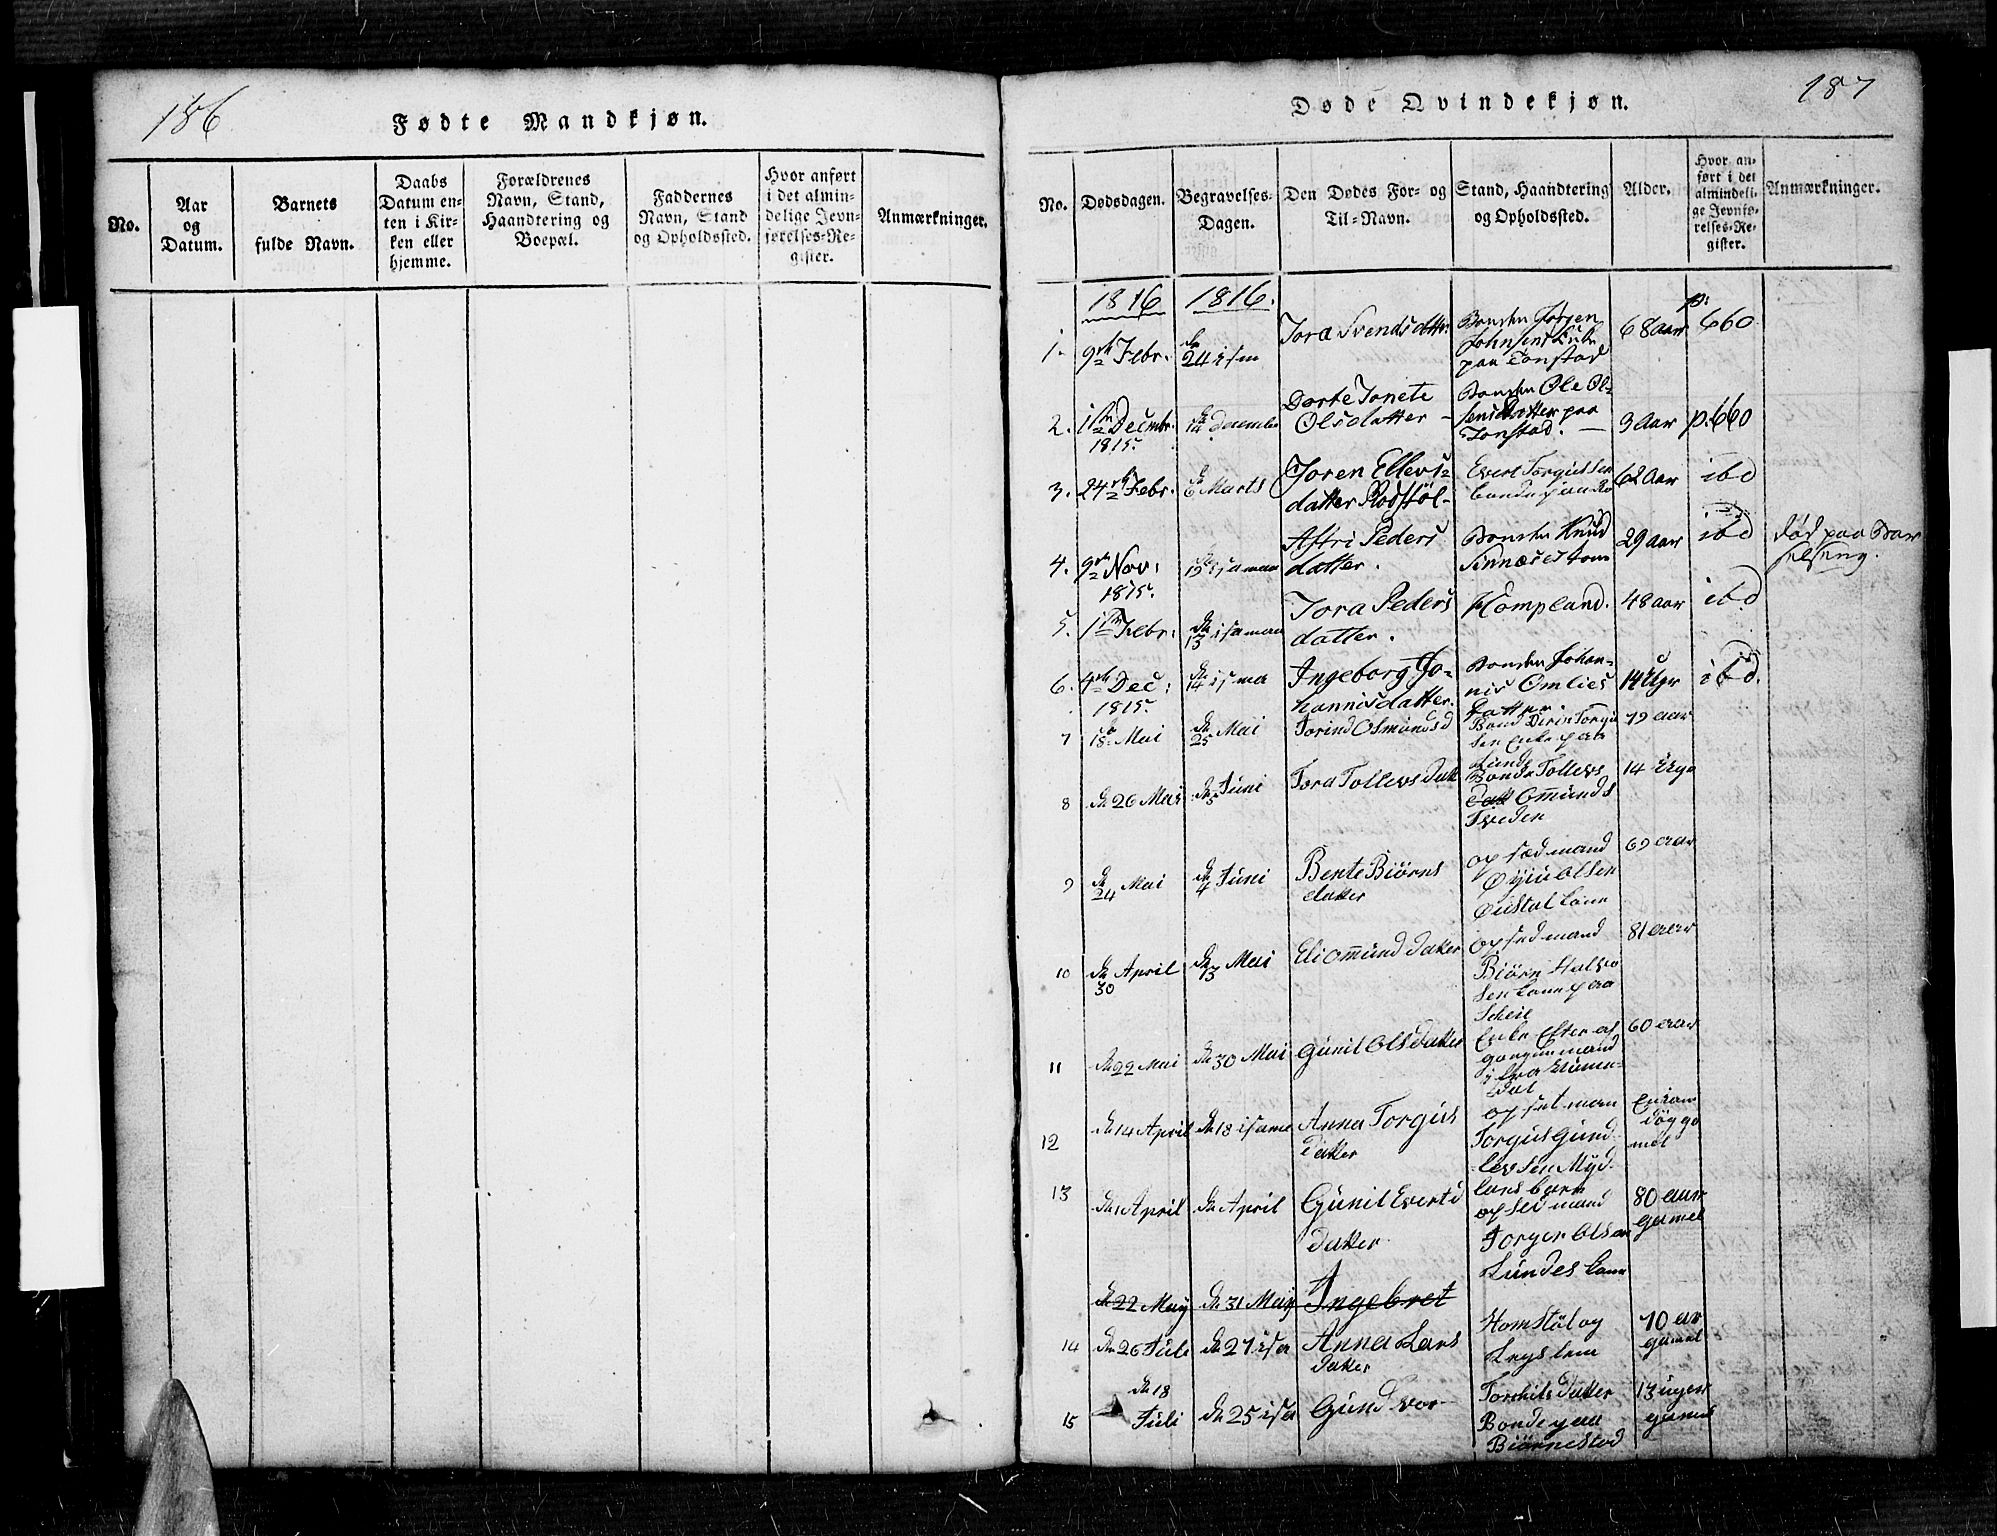 186
Fødte Mandkjøn.
No.
Aar
og
Datum.
Barnets
fulde Navn.
Daabs
Datum en-
ten i Kir-
ken eller
hjemme.
Forældrenes
Navn, Stand,
Haandtering og
Boepæl.
Faddernes
Navn, Stand
og Opholdssted.
Hvor anført
i det almin-
delige Jevn-
førelses-Re-
gister.
Anmærkninger.
187
Døde Qvindekjøn.
No.
Dødsdagen.
Begravelses-
Dagen.
Den Dødes For- og
Til-Navn.
Stand, Haandtering
og Opholdssted.
Alder.
Hvor an-
ført i det
almindeli-
ge Jevnfø-
relses-Re-
gister.
Anmærkninger.
1816
1816.
1.
9de Febr.
24 ism
Tora Svendsdatter
Bonden Jørgen
Johnsens Enke
paa Tonstad
68 aar
p. 660
2.
1ste Decembr.
1815.
14 december
Dorte Tonete
Olsdatter
Bonden Ole Ol-
sens Datter paa
Tonstad.
3 aar
p. 660
3.
24de Febr.
6 Marts
Joren Ellevs-
datter Rodstøl
Evert Torgussen
bonde paa Ro
62 aar
ibd
4.
9de Nov.
1815.
19 isamm
Aftri Peders
datter.
Bonden Knud
Sinnæses kone
29 aar
ibd
død paa Bar
selseng.
5.
1ste Febr.
13 isamm
Tora Peders
datter.
Hompland.
48 aar
ibd
6.
4de Dec.
1815.
14 isma
Ingeborg Jo-
hannisdatter.
Bonden Johan-
nis Omlies
Datter.
14 Uger
ibd.
7
18 Mai
25 Mai
Torind Osmundsd
Bond Dirin Torgu
sen Enke paa
Lunde
79 aar
8
dn 26 Mai
dn 5 Juni
Tora Tollevs datt
Bonde Tollevs
Datt Omunds
Tveden
14 Uge
9
dn 24 Mai
dn 4 Juni
Bente Biørns
datter
opsædmand
Øyiu Olsen
Øustal kone
69 aar
10
dn 30 April
dn 13 Mai
Eli Omund datter
opsedmand
Biørn Halvo
sen kone paa
Scheie
81 aar
11
dn 22 Mai
dn 30 Mai
Gunil Ols datter
Enke Efter af
gangen mand
i fra Hume-
dal
60 aar
12
dn 14 April
dn 18 isame
Anna Torgus
datter
opsetman
Torgus Gund-
levsen Myd-
lans barn
døg ga
mel
13
dn 1 April
dn April
Gunil Everts
datter
opsedmand
Torger Olsen
Lundes kone
80 aar
gamel
dn 22 May
dn 31 May
Ingebret
14
dn 26 Juli
dn 27 isa
Anna Lars
datter
Homstøl og
Legslem
70 ar
gamel
15
dn 18
Juli
dn 25 isa
Gundvor
Torchils datter
Bonde paa
Biørnestad
13 uger
gamel